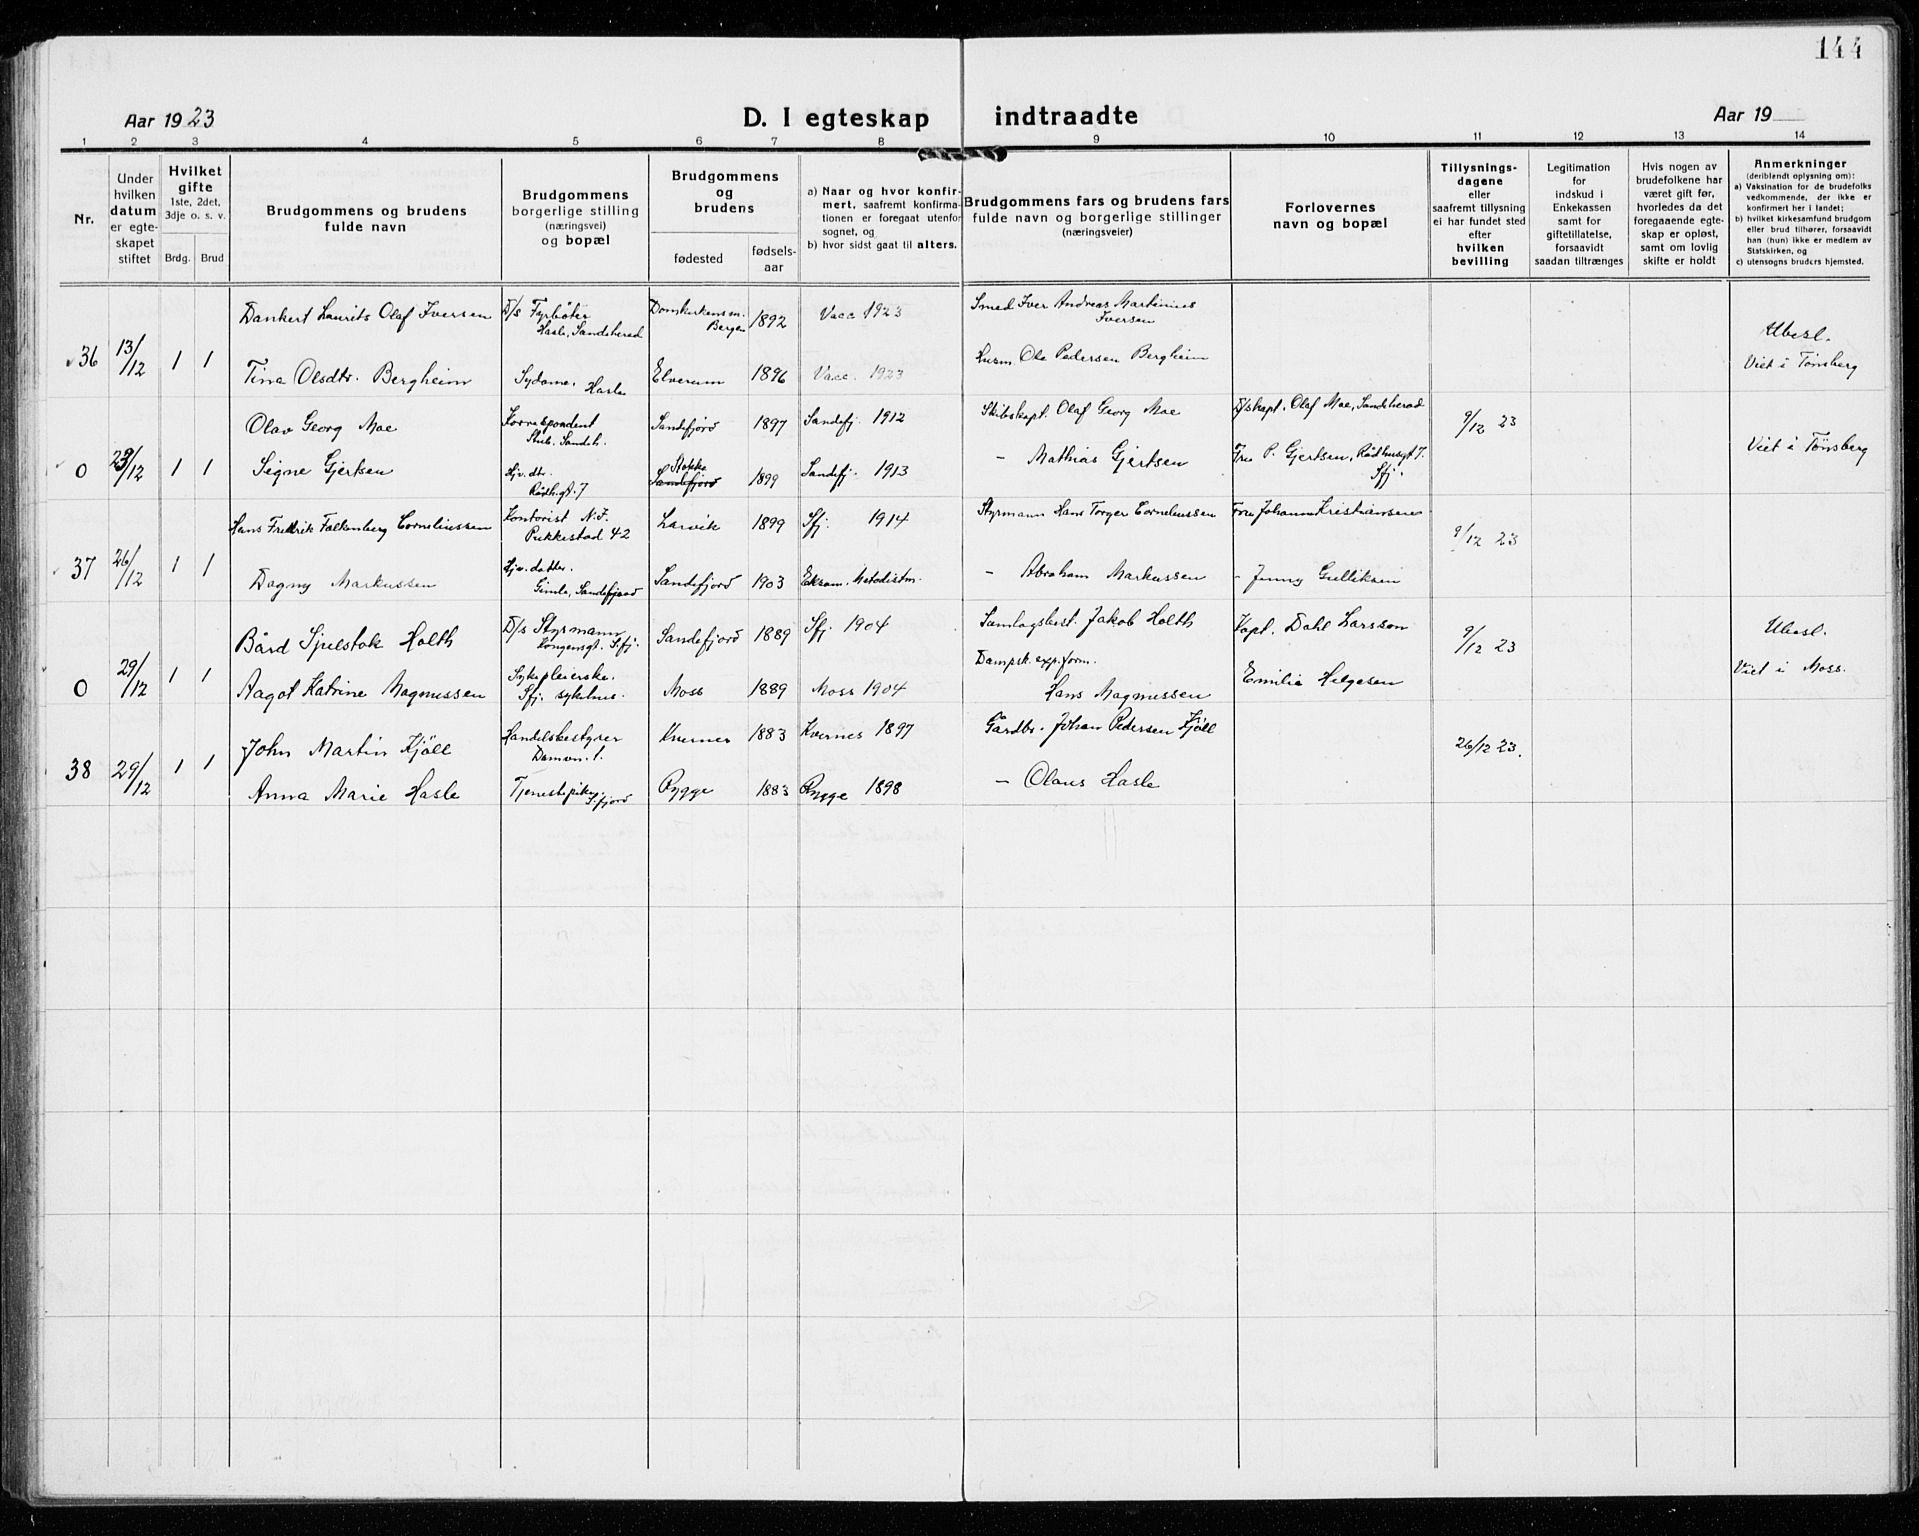 144
Aar 1923
D. I egteskap indtraadte
Aar 19
1 2 3 4 5 6 7 8 9 10 11 12 13 14
Nr.
Under hvilken datum er egteskapet stiftet
Hvilket gifte 1ste, 2det, 3dje o. s. v.
Brdg. Brud
Brudgommens og brudens fulde navn
Brudgommens borgerlige stilling (næringsvei) og bopæl
Brudgommens og brudens
fødested
fødselsaar
a) Naar og hvor konfirmert, saafremt konfirmationen er foregaat utenfor sognet, og
b) hvor sidst gaat til alters.
Brudgommens fars og brudens fars fulde navn og borgerlige stillinger (næringsveier)
Forlovernes navn og bopæl
Tillysningsdagene eller saafremt tillysning ei har fundet sted efter hvilken bevilling
Legitimation for indskud i Enkekassen samt for giftetillatelse, forsaavidt saadan tiltrænges
Hvis nogen av brudefolkene har været gift før, hvorledes da det foregaaende egteskap er opløst, samt om lovlig skifte er holdt
Anmerkninger (deriblandt oplysning om):
a) Vaksination for de brudefolks vedkommende, der ikke er konfirmert her i landet;
b) hvilket kirkesamfund brudgom eller brud tilhører, forsaavidt han (hun) ikke er medlem av Statskirken, og
c) utensogns bruders hjemsted.
36 13/12 1 1
Dankert Laurits Olaf Iversen D/s Fyrbøter Hasle, Sandeherad Domkirkensm. Bergen 1892 Vacc 1923 Smed Iver Andreas Martinius Iversen
Tina Olsdtr. Bergheim Sydame, Hasle Elverum 1896 Vacc. 1923 Husm. Ole Pedersen Bergheim
Ubesl. Viet i Tønsberg
0 23/12 1 1
Olav Georg Moe Korrespondent Stub. Sandeh. Sandefjord 1897 Sandefj. 1912 Skibskapt. Olaf Georg Moe D/skapt. Olaf Moe, Sandeherad 9/12 23
Signe Gjertsen Hjv. dtr. Rådh.gt. 7 Stokke Sandefjord 1899 Sandefj. 1913 – Mathias Gjertsen Fru P. Gjertsen, Rådhusgt 7. Sfj.
Viet i Tønsberg
37 26/12 1 1
Hans Fredrik Falkenberg Corneliussen Kontorist N.F. Pukkestad 42 Larvik 1899 Sfj. 1914 Styrmann Hans Torger Corneliussen Fru Johanne Kristiansen 9/12 23
Dagny Markussen Hjv. datter. Gimle, Sandefjord Sandefjord 1903 Eksam. Metodistm. – Abraham Markussen – Jenny Gulliksen
0 29/12 1 1
Bård Spilstok Holth D/s Styrmann Kongensgt. Sfj. Sandefjord 1889 Sfj. 1904 Samlagsbest. Jakob Holth Kapt. Dahl Larsson 9/12 23
Aagot Katrine Magnussen Sykepleierske. Sfj. sykehus. Moss 1889 Moss 1904 Dampsk.exp.form. Hans Magnussen Emilie Helgesen
Ubesl. Viet i Moss.
38 29/12 1 1
John Martin Kjøll Handelsbestyrer Damvn. 1. Kvernes 1883 Kvernes 1897 Gårdbr. Johan Pedersen Kjøll 26/12 23.
Anna Marie Hasle Tjenestepike, S.fjord Rygge 1883 Rygge 1898 – Olaus Hasle